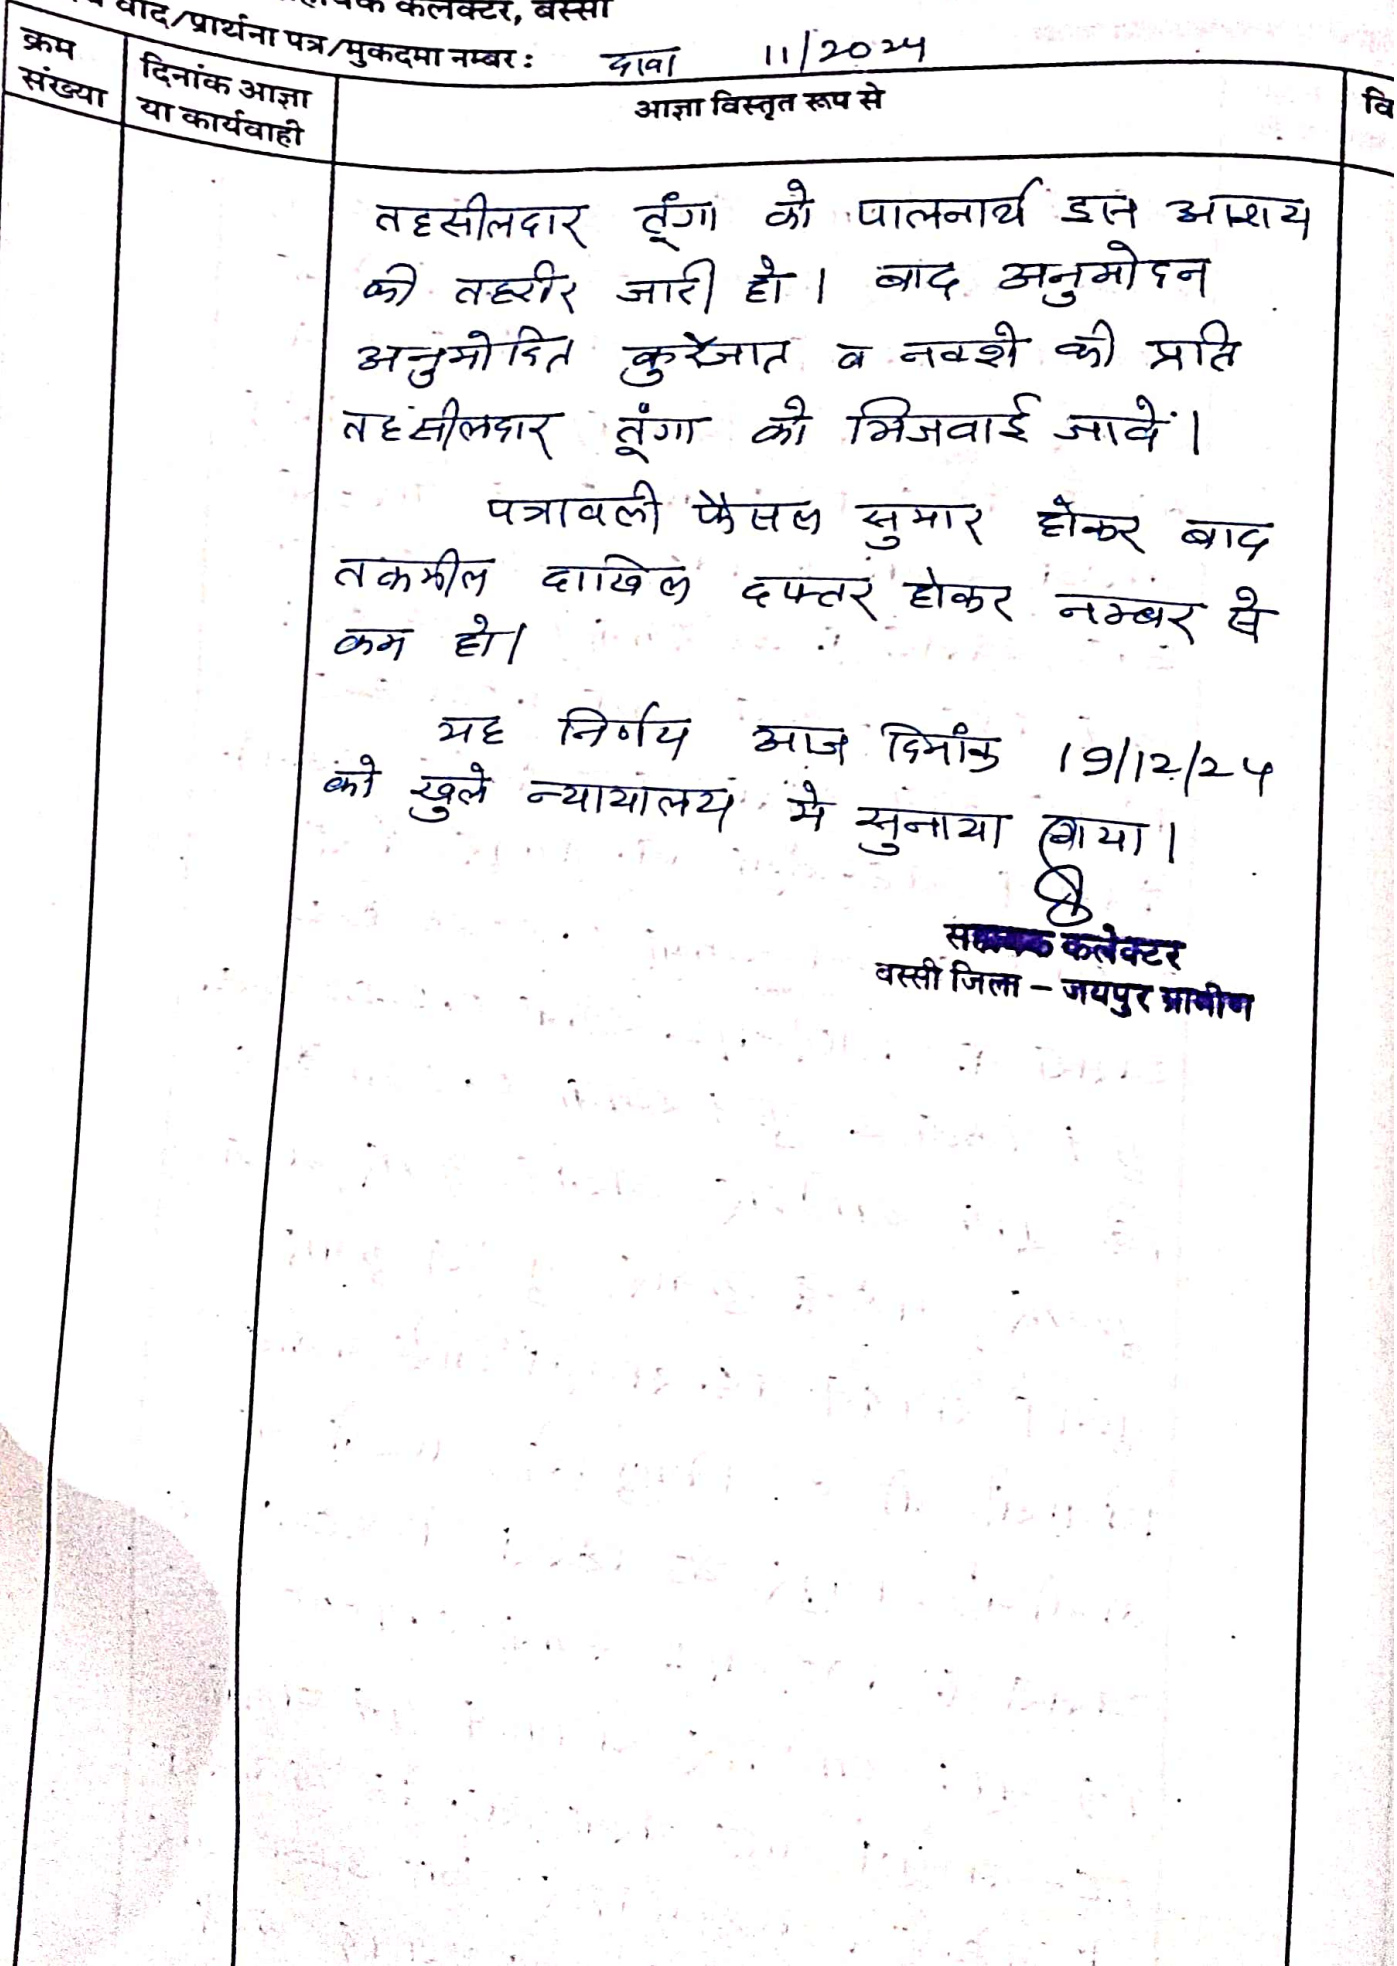 कलक्टर, बस्सी
वाद/प्रार्थना पत्र/मुकदमा नम्बर: दावा 11/2024
क्रम संख्या
दिनांक आज्ञा या कार्यवाही
आज्ञा विस्तृत रूप से
वि
तहसीलदार तूंगा को पालनार्थ इस आशय
की तहरीर जारी हो। बाद अनुमोदन
अनुमोदित कुर्रेजात व नक्शे की प्रति
तहसीलदार तूंगा को भिजवाई जावें।
पत्रावली फैसल सुमार होकर बाद
तकमील दाखिल दफ्तर होकर नम्बर से
कम हो।
यह निर्णय आज दिनांक 19/12/24
को खुले न्यायालय मे सुनाया गया।
सहायक कलेक्टर
बस्सी जिला - जयपुर ग्रामीण